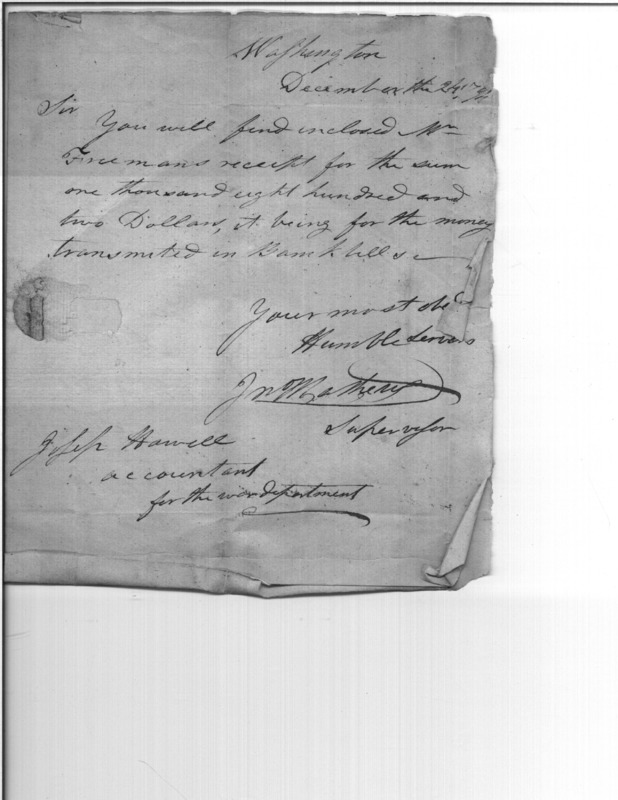 Washington
December the 24
Sir
You will find inclosed Mr
Freemans receipt for the sum
one thousand eight hundred and
two Dollars, it being for the money
transmited in Bank bills
Your most obt
Humble
Jno Mathews
Supervisor
Joseph Howell
accountant
for the war department